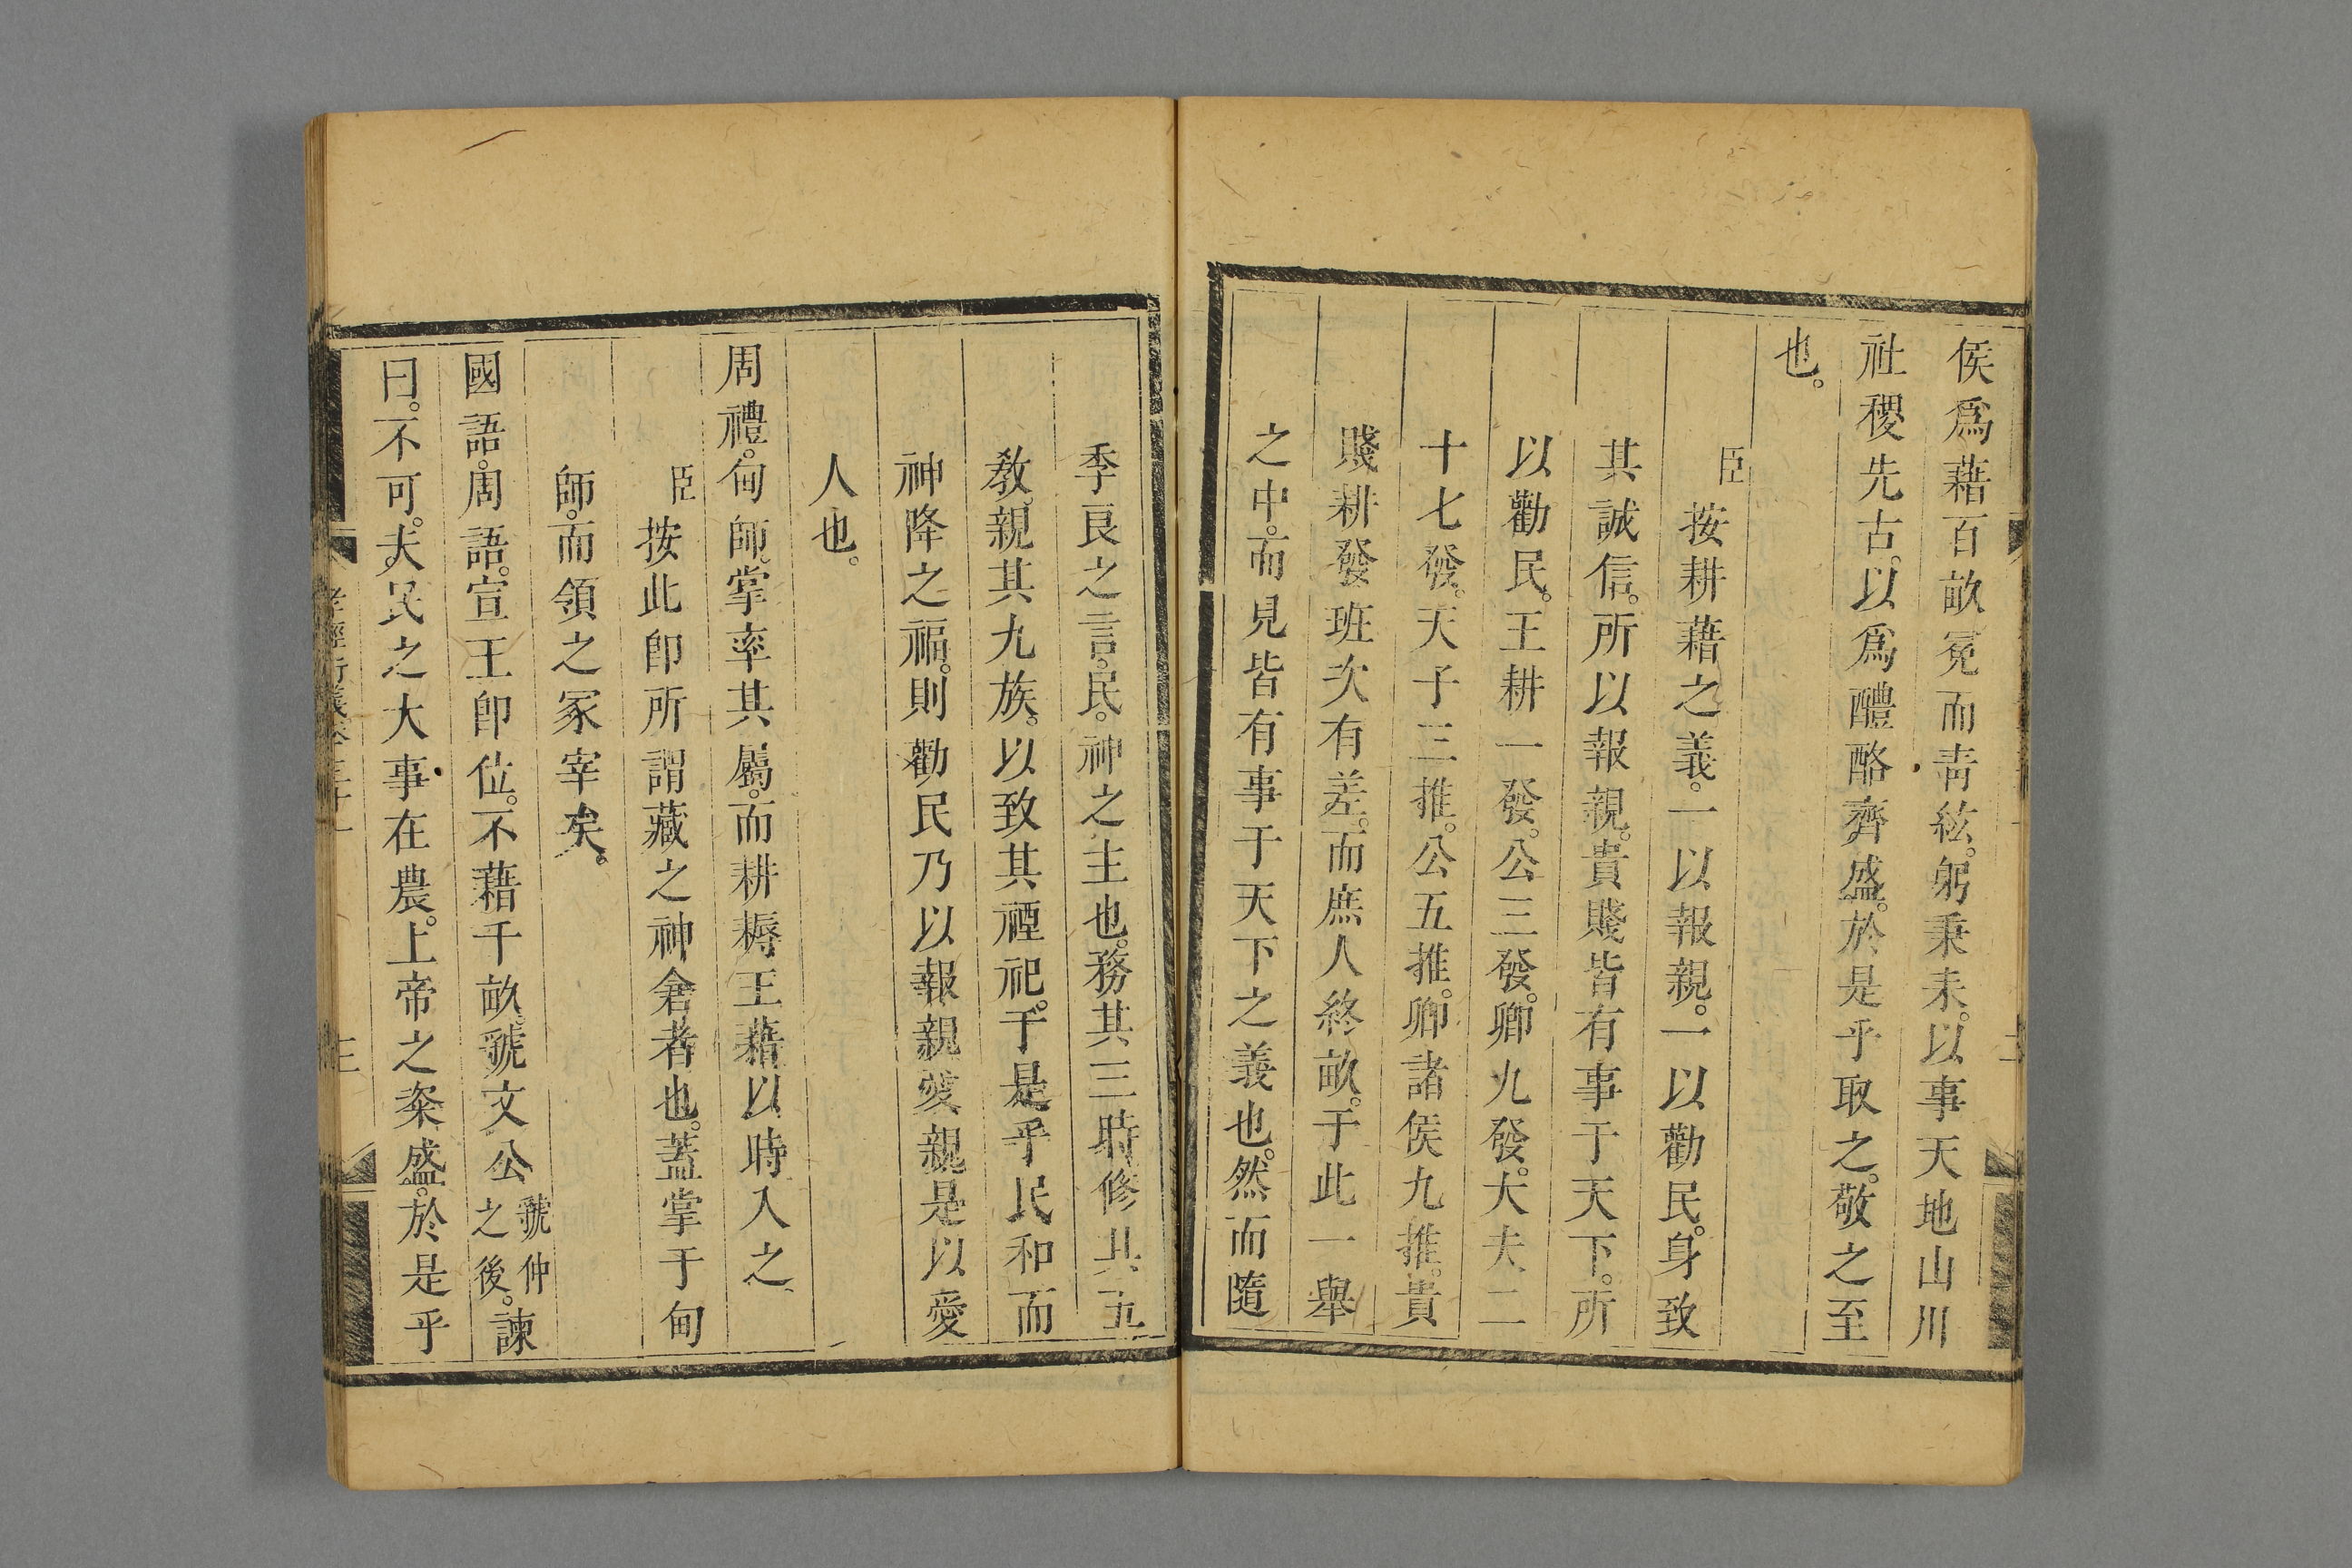 侯爲藉百畝冕而青紘。躬秉耒。以事天地山川
社稷先古。以爲醴酪齊盛。於是乎取之。敬之至
也。
臣按耕藉之義。一以報親。一以勸民。身致
其誠信。所以報親。貴賤皆有事于天下。所
以勸民。王耕一發。公三發。卿九發。大夫二
十七發。天子三推。公五推。卿諸侯九推。貴
賤耕發班次有差。而庶人終畝。于此一舉
之中。而見皆有事于天下之義也。然而隨
季良之言。民。神之主也。務其三時。修其五
教。親其九族。以致其禋祀。于是乎民和而
神降之福。則勸民乃以報親。愛親是以愛
人也。
周禮。甸師。掌率其屬。而耕耨王藉。以時入之。
臣按此卽所謂藏之神倉者也。蓋掌于甸
師。而領之冢宰矣。
國語。周語。宣王卽位。不藉千畝。虢文公虢仲之後。諫
曰。不可。夫民之大事在農。上帝之粢盛。於是乎
孝經衍義卷二十一
三